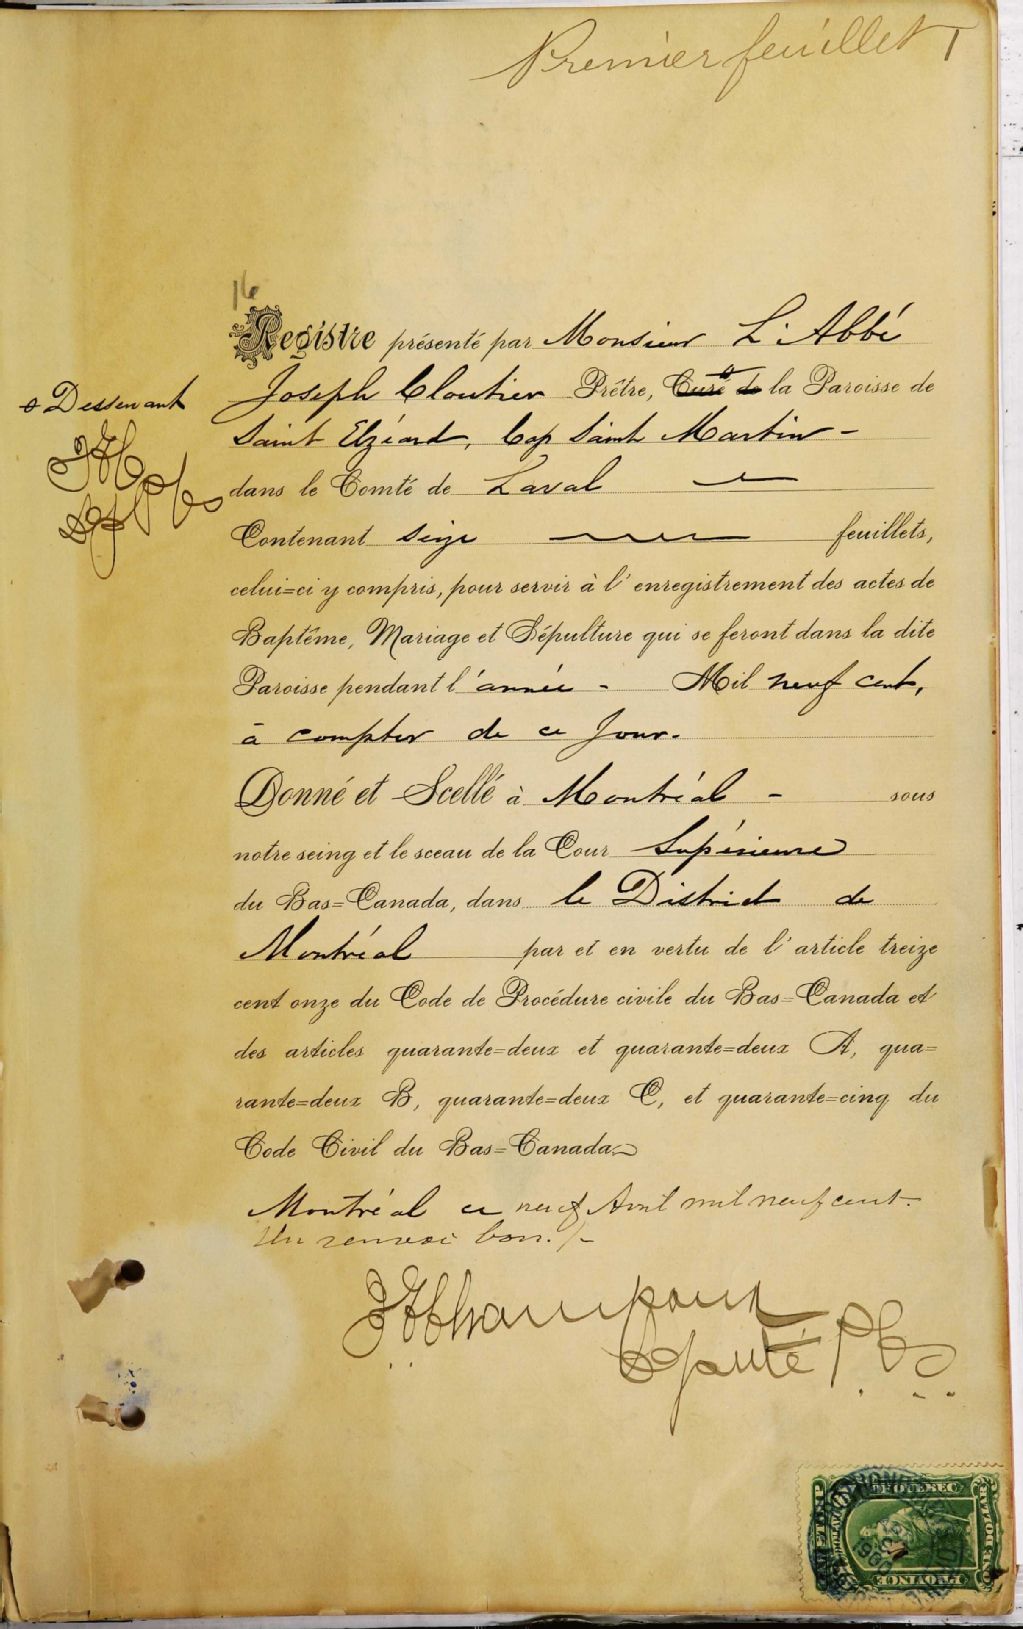 Premier feuillet 1
16
Registre présenté par Monsieur L'Abbé
ø Desservant
Joseph Cloutier Prêtre, Curé de la Paroisse de
Saint Elzéard, Cap Saint Martin -
dans le Comté de Laval
Contenant seize feuillets,
celui=ci y compris, pour servir à l'enregistrement des actes de
Baptême, Mariage et Sépulture qui se feront dans la dite
Paroisse pendant l'année - Mil neuf cent,
à compter de ce Jour.
Donné et Scellé à Montréal - sous
notre seing et le sceau de la Cour Supérieure
du Bas=Canada, dans le District de
Montréal par et en vertu de l'article treize
cent onze du Code de Procédure civile du Bas=Canada et
des articles quarante=deux et quarante=deux A, qua=
rante=deux B, quarante=deux C, et quarante=cinq du
Code Civil du Bas=Canada
Montréal ce neuf Avril mil neuf cent.
Un renvoi bon. /-
Champoux
Député P.
QUEBEC
PROVINCE
1900